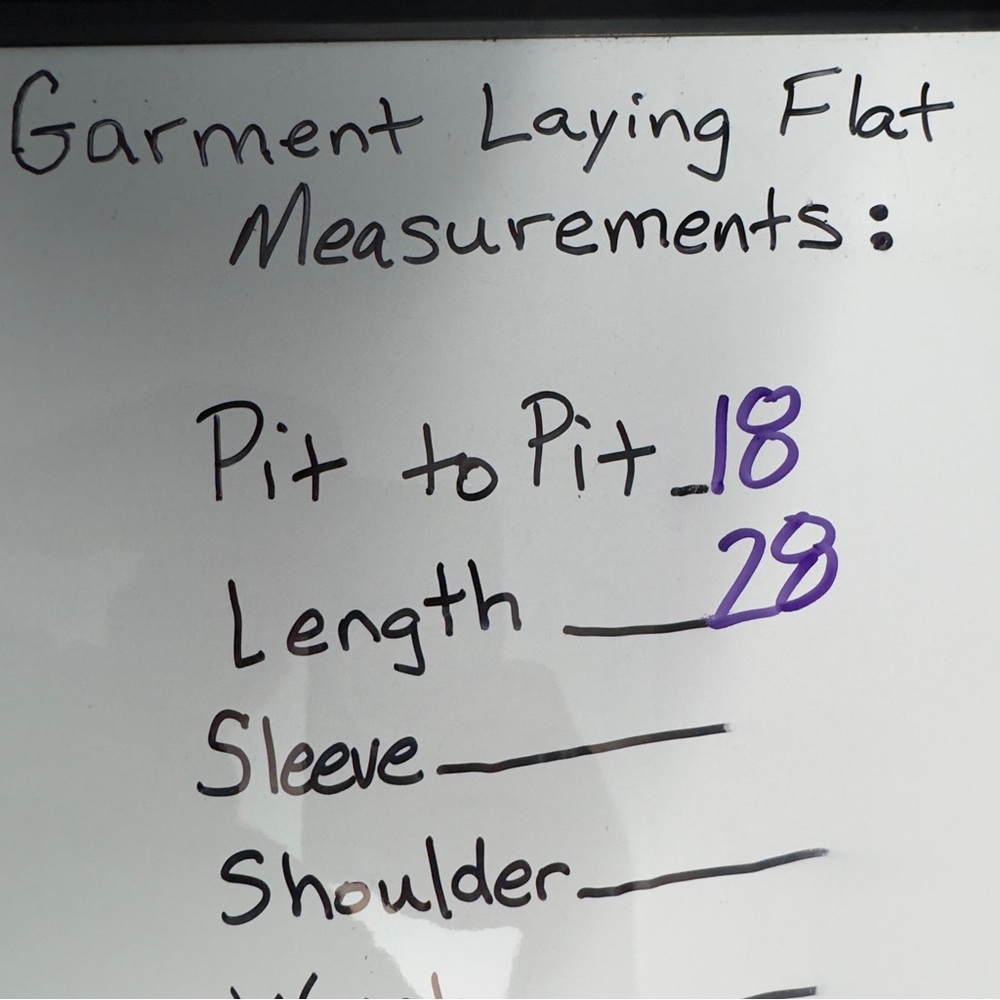 Garment Laying Flat
Measurements:
Pit to Pit _18
Length ___28
Sleeve ___
Shoulder ___